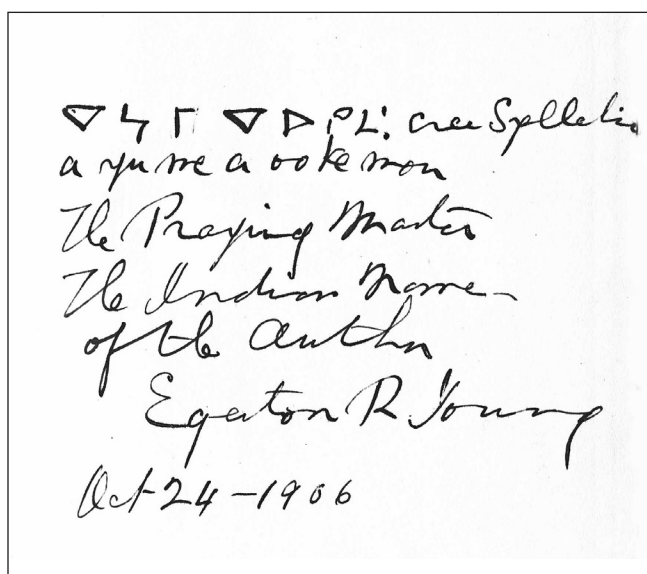 ᐁ ᔦ ᒥ ᐁ ᐅ ᑭ ᒪ: Cree Syllabic
a yu me a oo ke mou
The Praying Master
The Indian Name
of the Author
Egerton R Young
Oct 24 - 1906